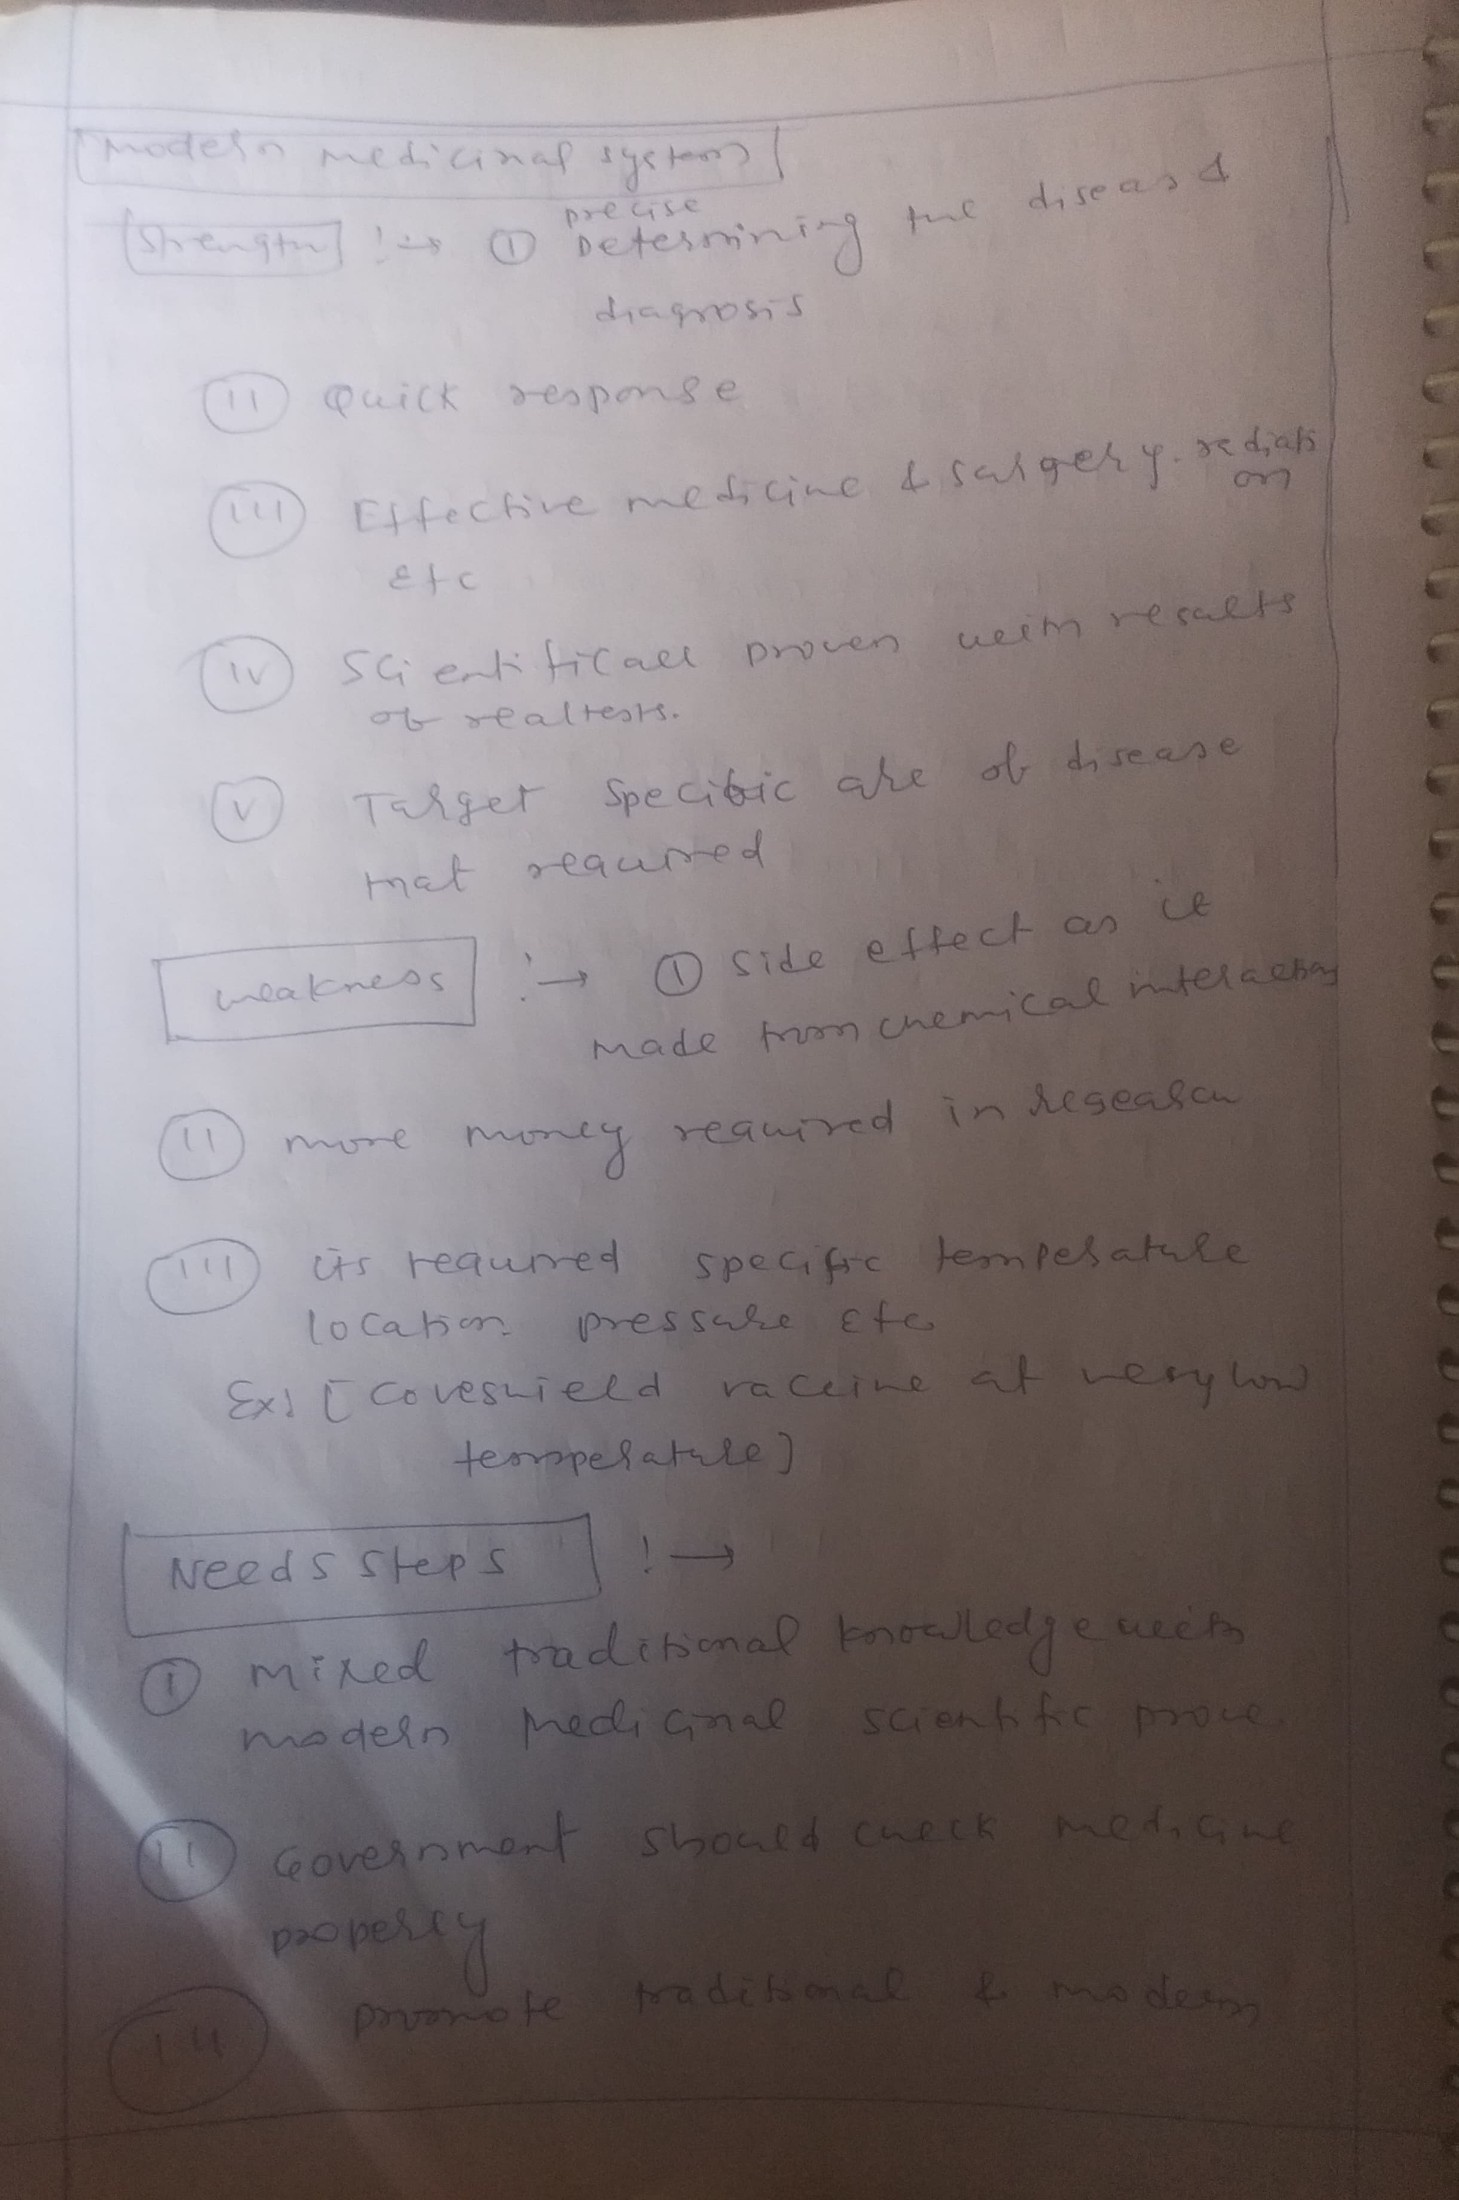 Modern medicinal system
Strength :→ ① precise Determining the disease &
diagnosis
(II) Quick response
(III) Effective medicine & surgery. radiation
etc
(IV) Scientificall proven with results
of realtests.
(V) Target specific are of disease
that required
weakness :→ ① side effect as it
made from chemical interaction
(II) more money required in research
(III) its required specific temperature
location pressure Etc
Ex: [Coveshield vaccine at very low
temperature]
Needs Steps :→
① mixed traditional knowledge with
modern Medicinal scientific prove
(II) Government should check medicine
property
(III) promote traditional & modern